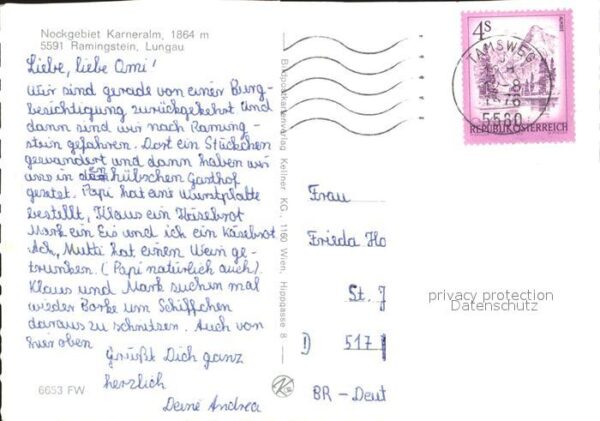 Nockgebiet Karneralm, 1864 m
5591 Ramingstein, Lungau
Liebe, liebe Omi!
Wir sind gerade von einer Burg-
besichtigung zurückgekehrt und
dann sind wir nach Raming-
stein gefahren. Dort ein Stückchen
gewandert und dann haben wir
uns in hübschen Gasthof
gesetzt. Papi hat eine Wurstplatte
bestellt, Klaus ein Käsebrot
Mark ein Eis und ich ein Käsebrot.
Ach, Mutti hat einen Wein ge-
trunken. (Papi natürlich auch).
Klaus und Mark suchen mal
wieder Borke um Schiffchen
daraus zu schnitzen. Auch von
hier oben
Grüßt Dich ganz
herzlich
Deine Andrea
6653 FW
Bildpostkartenverlag Kellner KG., 1160 Wien, Hippgasse 8
4S
TAMSWEG
5580
REPUBLIK ÖSTERREICH
Frau
Frieda Ho
St. J
D 517
BR - Deut
privacy protection
Datenschutz